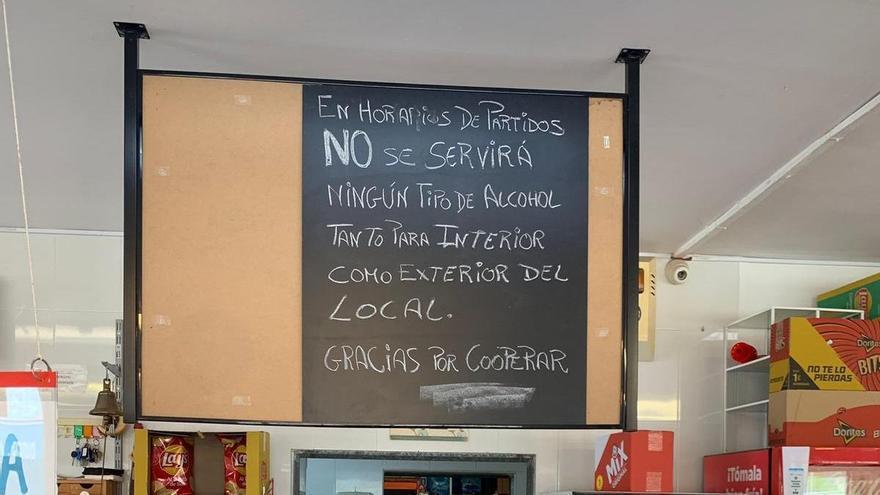 EN HORARIOS DE PARTIDOS
NO SE SERVIRÁ
NINGÚN TIPO DE ALCOHOL
TANTO PARA INTERIOR
COMO EXTERIOR DEL
LOCAL.
GRACIAS POR COOPERAR
Lay's
MIX
Doritos
BITS
NO TE LO
PIERDAS
Doritos
¡Tómala
A